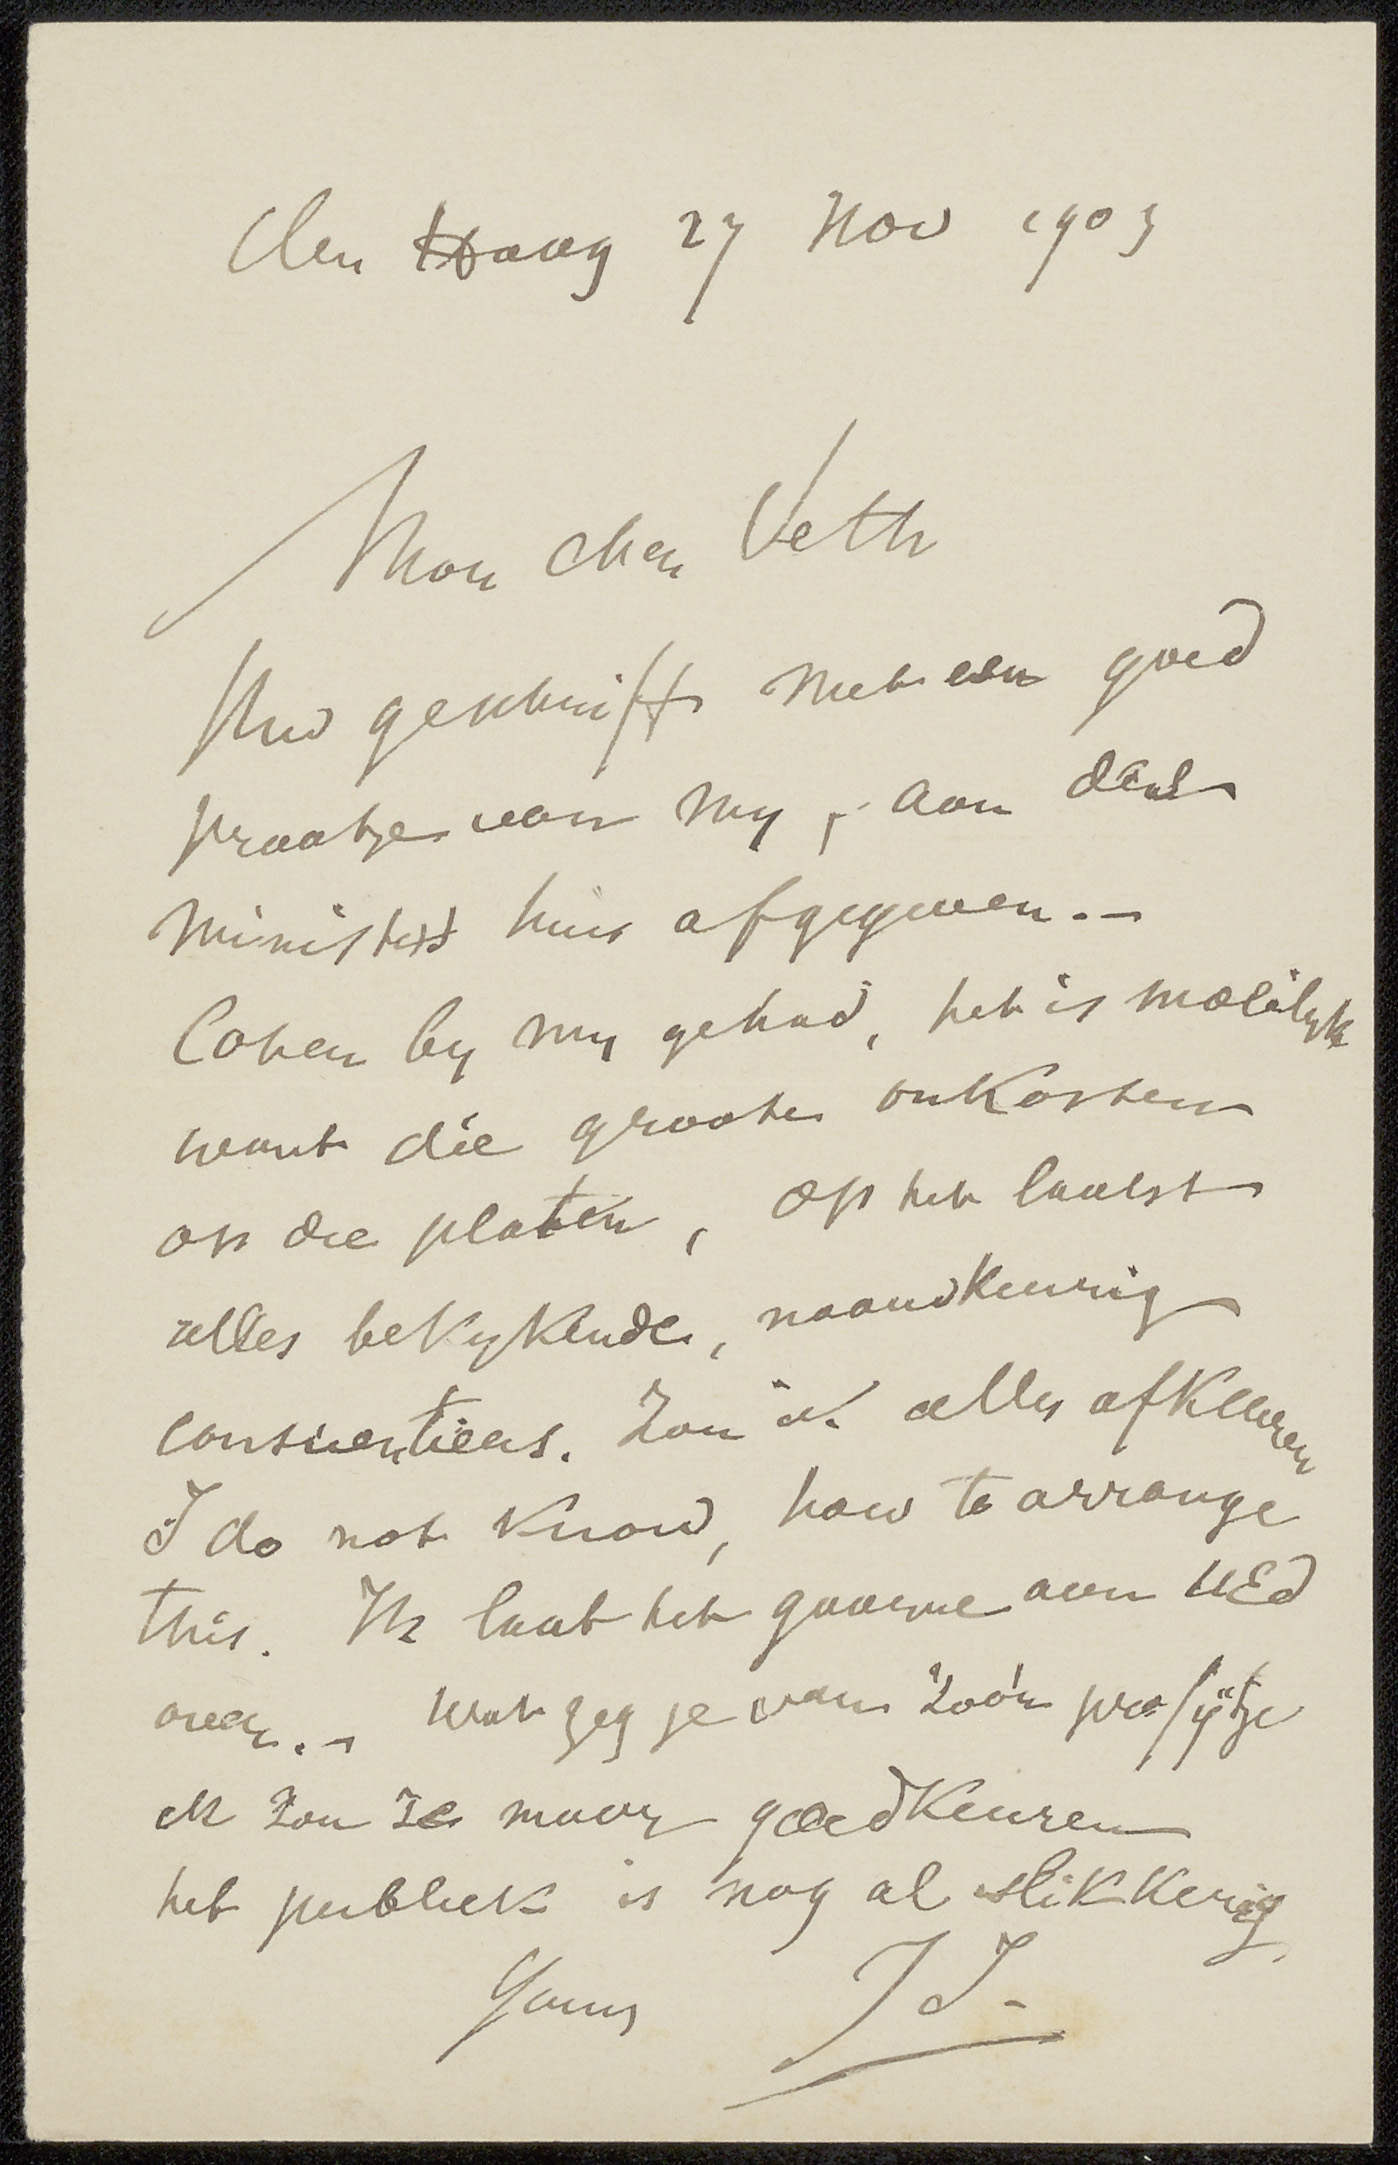 den Haag 27 Nov 1903
Mon cher Veth
Uw geschrift met een goed
praatje van my, aan des
ministers huis afgegeven. –
Cohen by my gehad, het is moeilyk
want die groote onkosten
op die platen, op het laatst
alles bekykende, naauwkeurig
conscientieus. Zou ik alles afkeuren
I do not know, how to arrange
this. Ik laat het gaarne aan UEd
over. – Wat zeg je van zóó'n profijtje
ik zou ze maar goedkeuren
het publiek is nog al slikkerig
Yours J J.